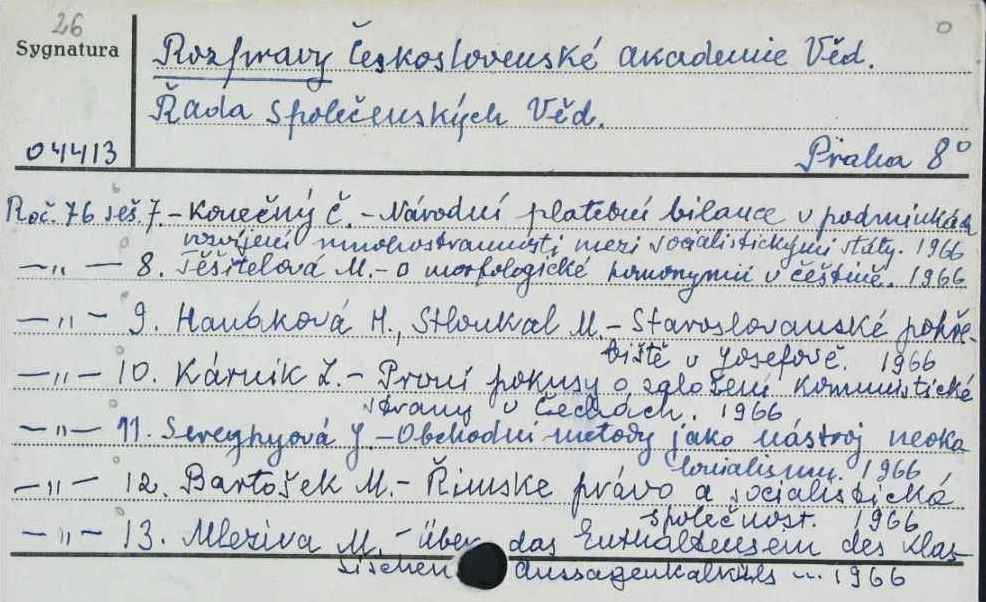 26
Sygnatura
Rozpravy Československé akademie Věd.
Řada společenských Věd.
044413
Praha 8°
Roč. 76 seš. 7. - Konečný Č. - Národní platební bilance v podmínkách
rozvíjení mnohostrannosti mezi socialistickými státy. 1966
—„— 8. Těšitelová M. - o morfologické homonymii v češtině. 1966
—„— 9. Hanáková H., Stloukal M. - Staroslovanské pohře-
biště v Josefově. 1966
—„— 10. Kárník Z. - První pokusy o založení komunistické
strany v Čechách. 1966
—„— 11. Sereghyová J. - Obchodní metody jako nástroj neoko
lonialismu. 1966
—„— 12. Bartošek M. - Římske právo a socialistická
společnost. 1966
—„— 13. Mleziva M. - Über das Enthaltensein des klas-
sischen Aussagenkalküls ... 1966